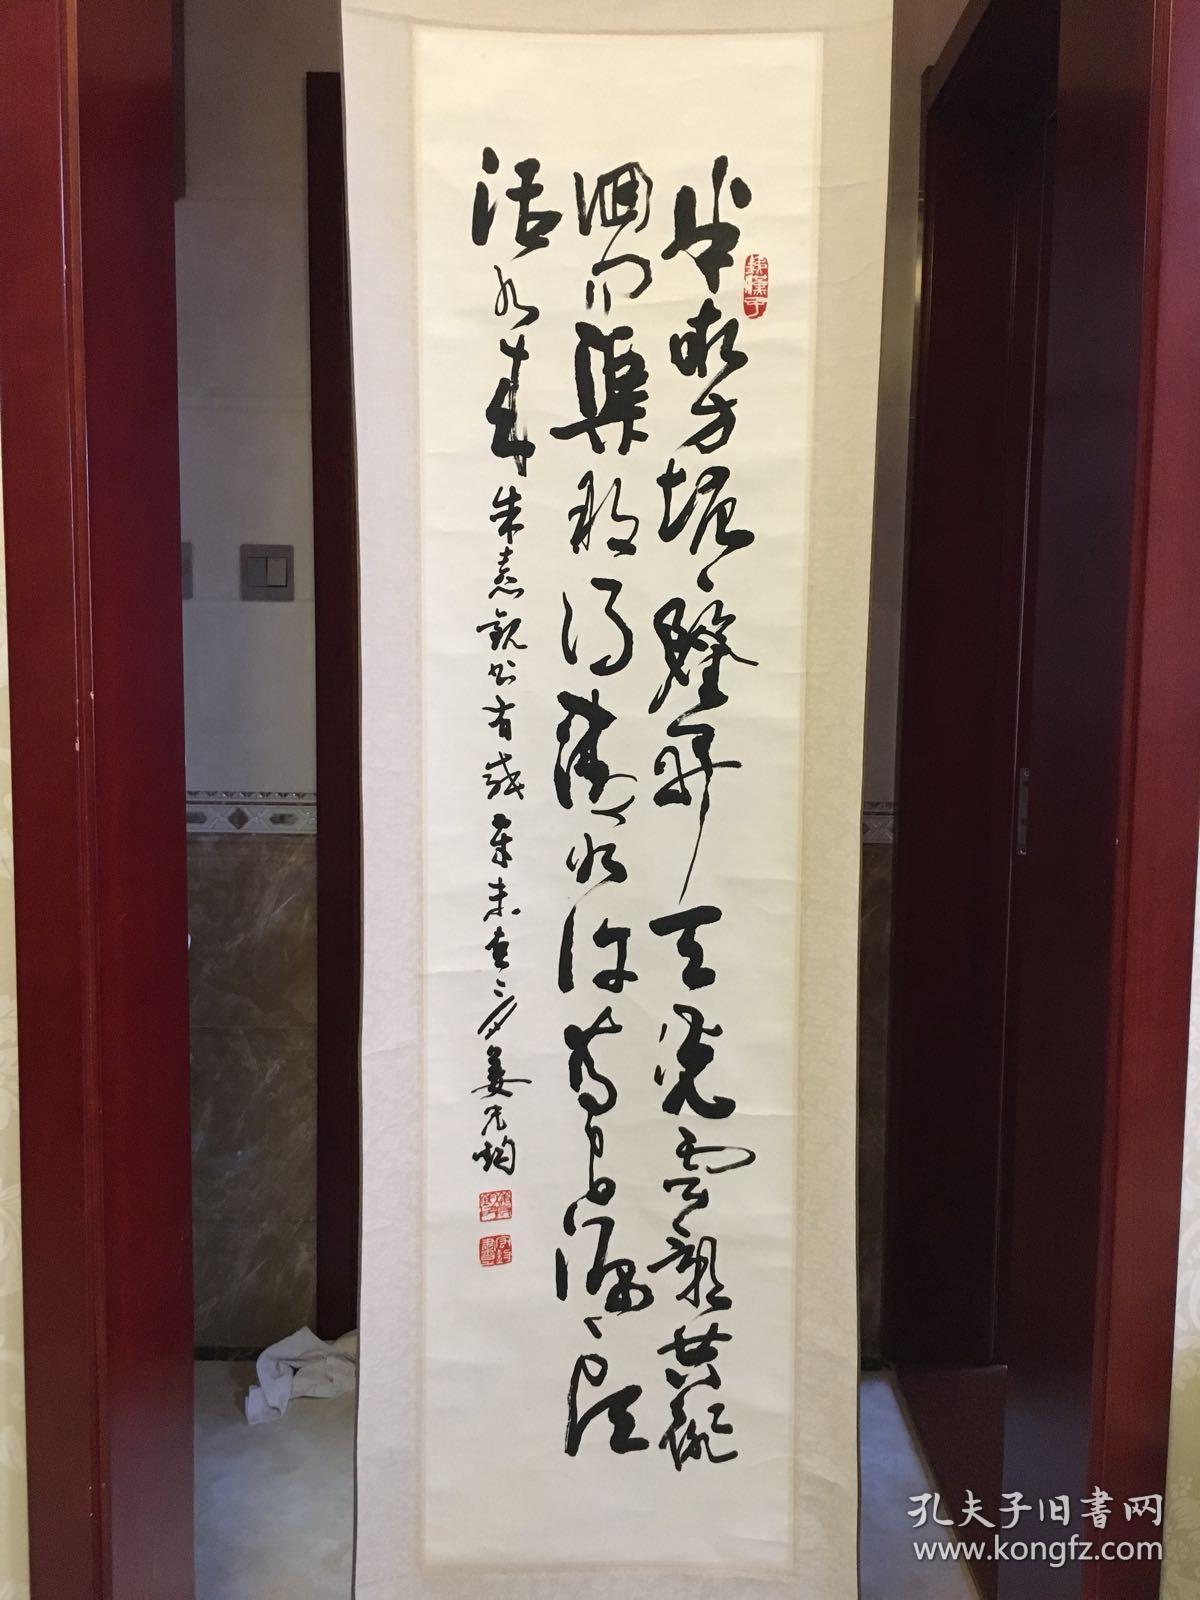 半亩方塘一鑑开天光云影共徘
徊问渠那得清如许为有源头
活水来
朱熹观书有感 辛未
孔夫子旧书网
www.kongfz.com